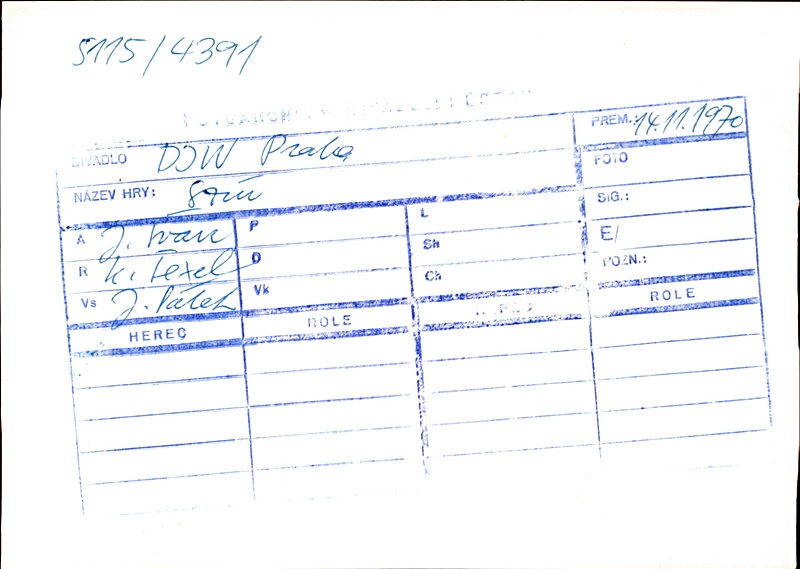 S115/4391
DIVADLO DJW Praha PREM.: 14.11.1970
NÁZEV HRY: Stín FOTO
SIG.:
A P L E/
R O Sh POZN.:
Vs J. Pálek Vk Ch
HEREC ROLE ROLE